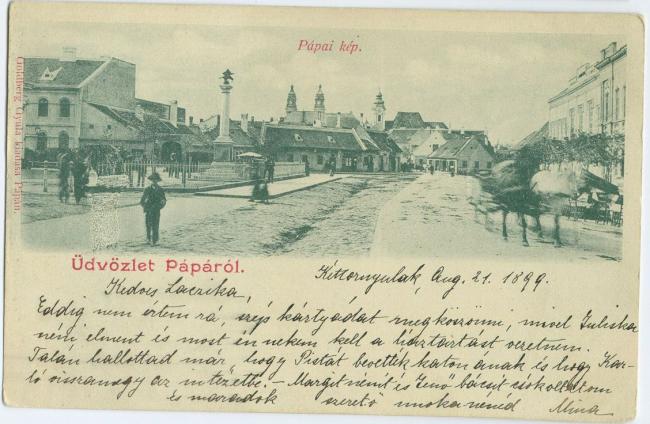 Pápai kép.
Goldberg Gyula kiadása Pápán.
Üdvözlet Pápáról.
Kéttornyulak, Aug. 21. 1899.
Kedves Laczika,
Eddig nem értem rá, szép kártyádat megköszönni, mivel Juliska
néni elment és most én nekem kell a háztartást vezetnem.
Talán hallottad már, hogy Pistát bevették katonának és hogy Kar-
ló visszamegy az intézetbe. - Margit nénit és Jenő bácsit csókoltatom
és maradok szerető unokanénéd Mina